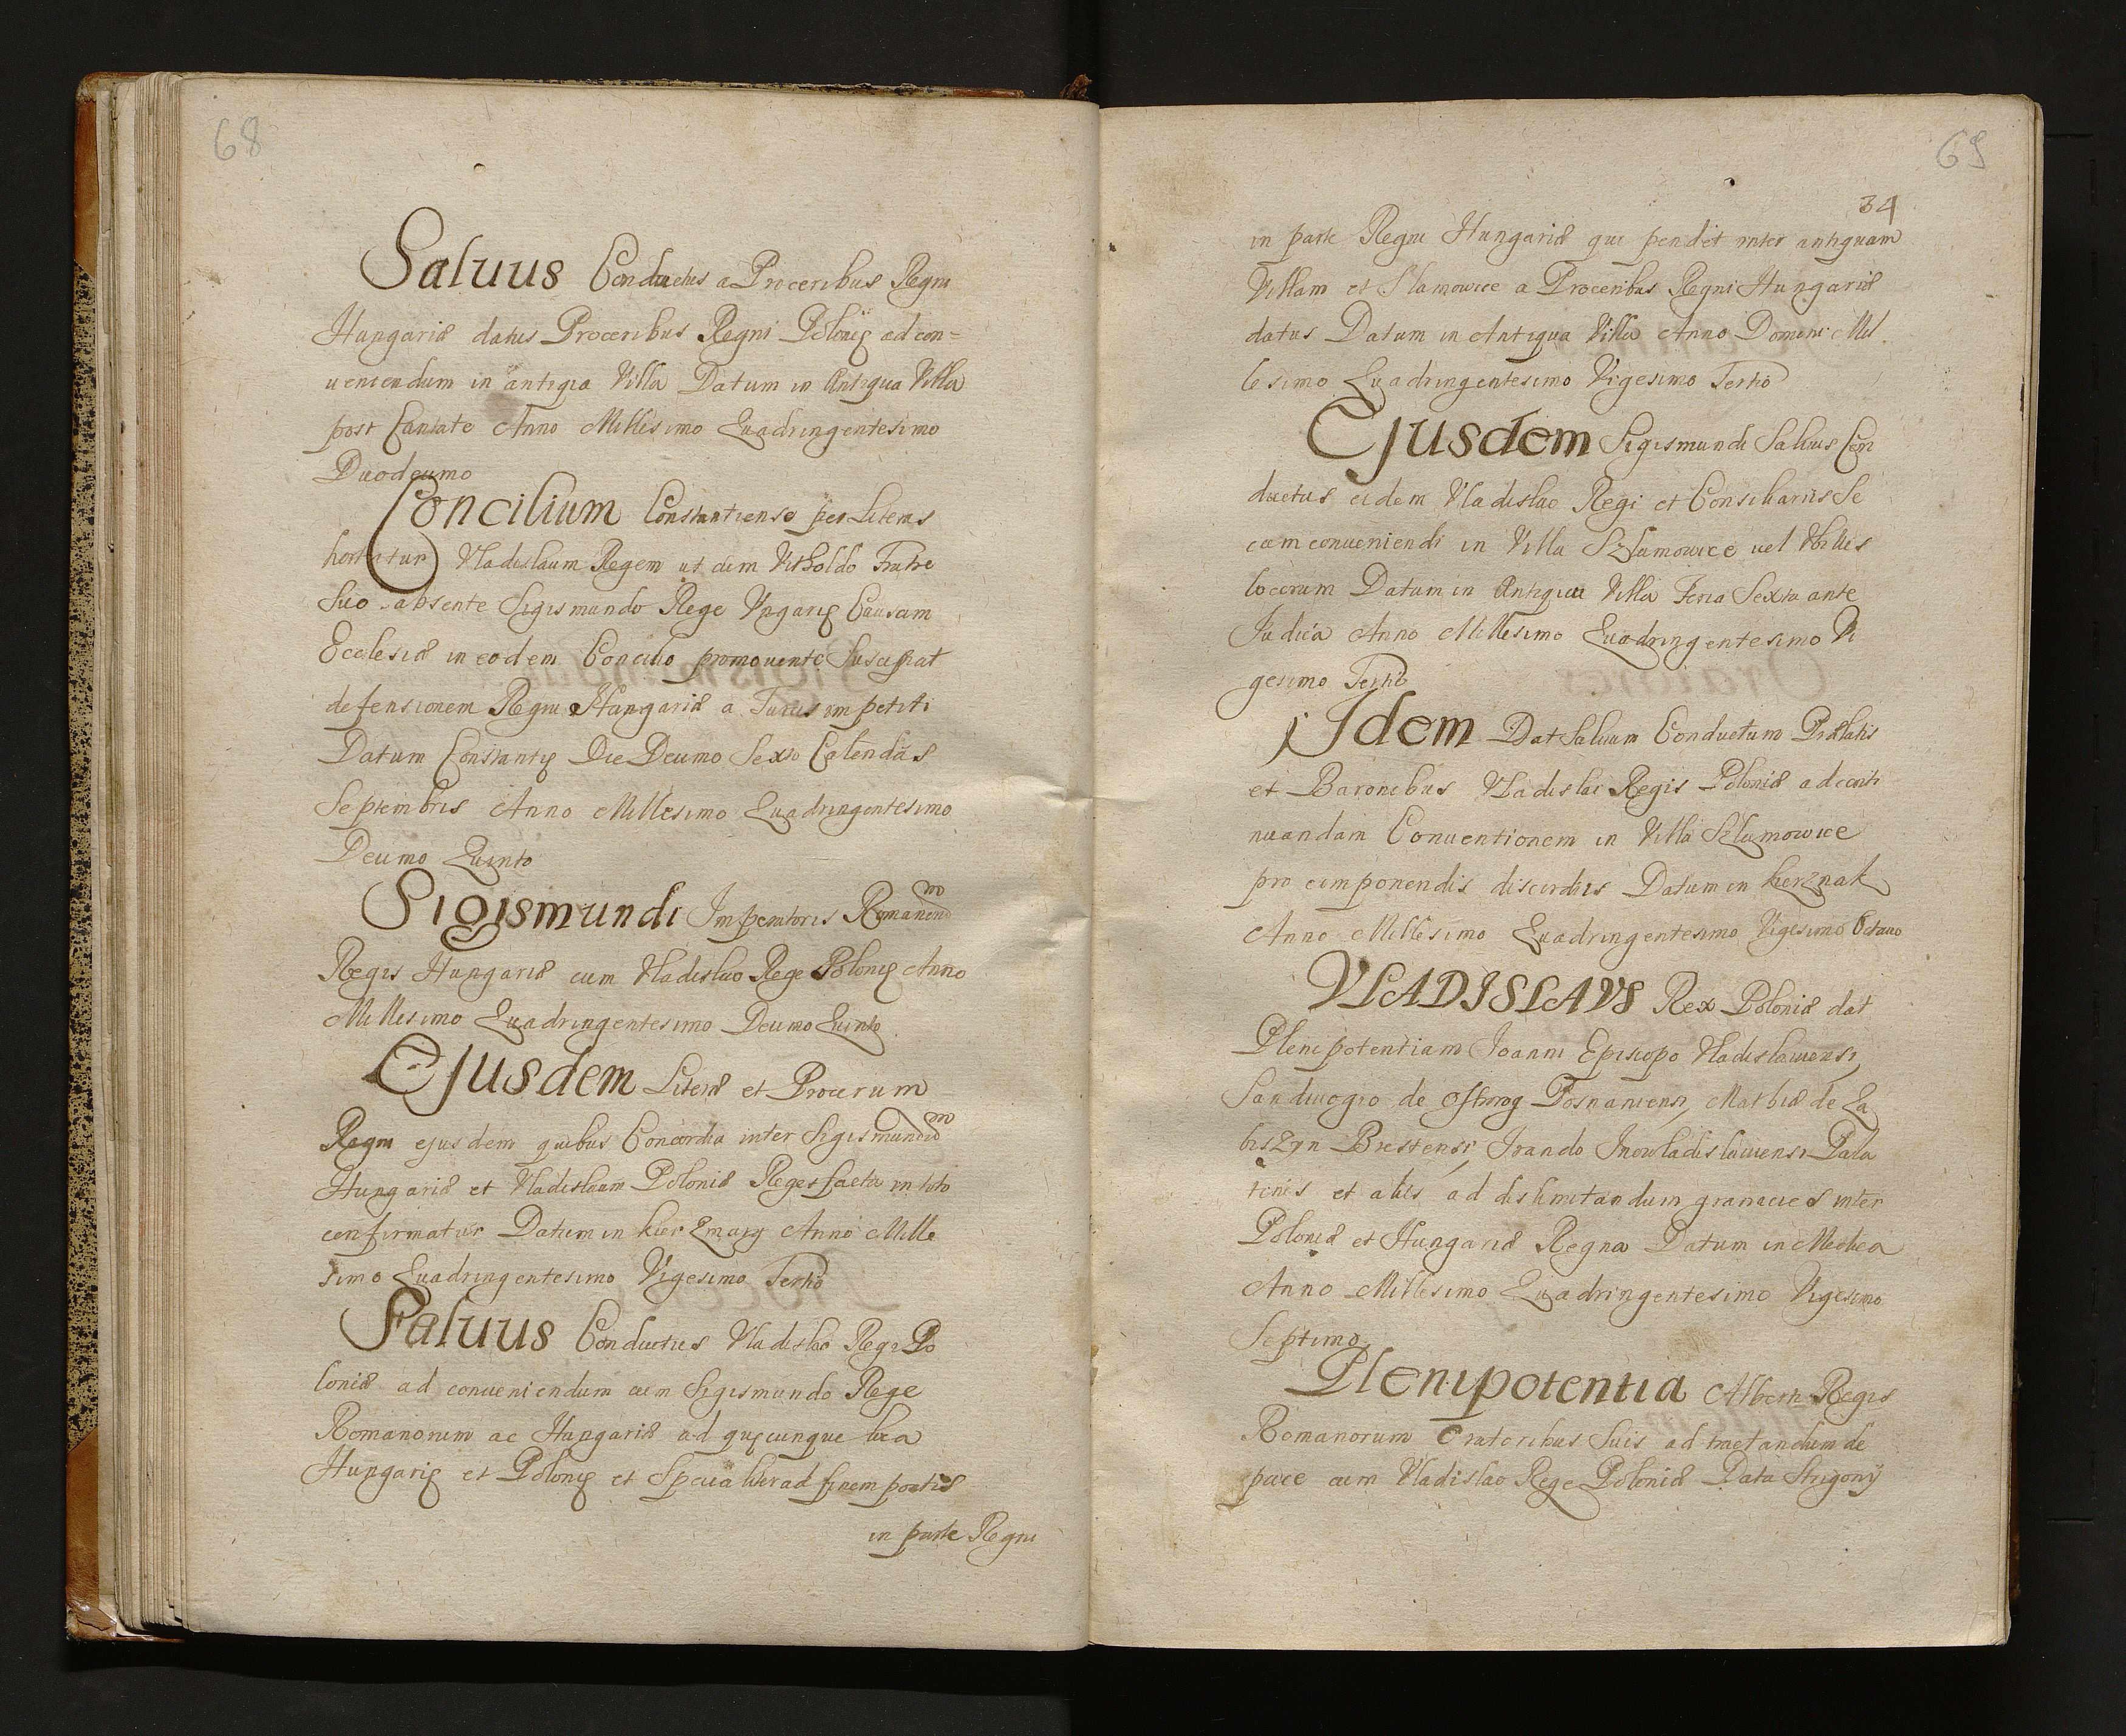 68
Saluus Conductus a Proceribus Regni
Hungariæ datus Proceribus Regni Polonię ad con=
ueniendum in antiqua Villa Datum in Antiqua Villa
post Cantate Anno Millesimo Quadringentesimo
Duodecimo
Concilium Constantiense per Literas
hortatur Vladislaum Regem ut cum Vitholdo Fratre
Suo absente Sigismundo Rege Vngarię Causam
Ecclesiæ in eodem Concilio promouente Suscipiat
defensionem Regni Hungariæ a Turcis impetiti
Datum Constantię Die Decimo Sexto Calendas
Septembris Anno Millesimo Quadringentesimo
Decimo Quinto
Sigismundi Imperatoris Romanorum
Regis Hungariæ cum Vladislao Rege Polonię Anno
Millesimo Quadringentesimo Decimo Quinto
Ejusdem Literæ et Procerum
Regni ejusdem quibus Concordia inter Sigismundum
Hungariæ et Vladislaum Poloniæ Reges facta in toto
confirmatur Datum in Kier Zmarg Anno Mille
simo Quadringentesimo Vigesimo Tertio
Saluus Conductus Vladislao Regi Po
loniæ ad conueniendum cum Sigismundo Rege
Romanorum ac Hungariæ ad quęcunque loca
Hungarię et Polonię et Specialiter ad finem pontis
in parte Regni
69
34
in parte Regni Hungariæ qui pendet inter antiquam
Villam et Slamowice a Proceribus Regni Hungariæ
datus Datum in Antiqua Villa Anno Domini Mil
lesimo Quadringentesimo Vigesimo Tertio
Ejusdem Sigismundi Saluus Con
ductus eidem Vladislao Regi et Consiliariis Se
cum conueniendi in Villa Szlamowice uel Villis
locorum Datum in Antiqua Villa Feria Sexta ante
Judica Anno Millesimo Quadringentesimo Vi
gesimo Tertio
Idem Dat Saluum Conductum Prælatis
et Baronibus Vladislai Regis Poloniæ ad conti
nuandam Conuentionem in Villa Szlamowice
pro componendis discordiis Datum in Kerznak
Anno Millesimo Quadringentesimo Vigesimo Octauo
VLADISLAVS Rex Poloniæ dat
Plenipotentiam Joanni Episcopo Vladislauiensi,
Sandiuogio de Ostrorog Posnaniensi, Mathiæ de La
biszyn Brestensi, Jrando Jnowladislauiensi Pala
tinis et aliis ad dislimitandum granicies inter
Poloniæ et Hungariæ Regna Datum in Miedica
Anno Millesimo Quadringentesimo Vigesimo
Septimo
Plenipotentia Alberti Regis
Romanorum Oratoribus Suis ad tractandum de
pace cum Vladislao Rege Poloniæ Data Strigonij